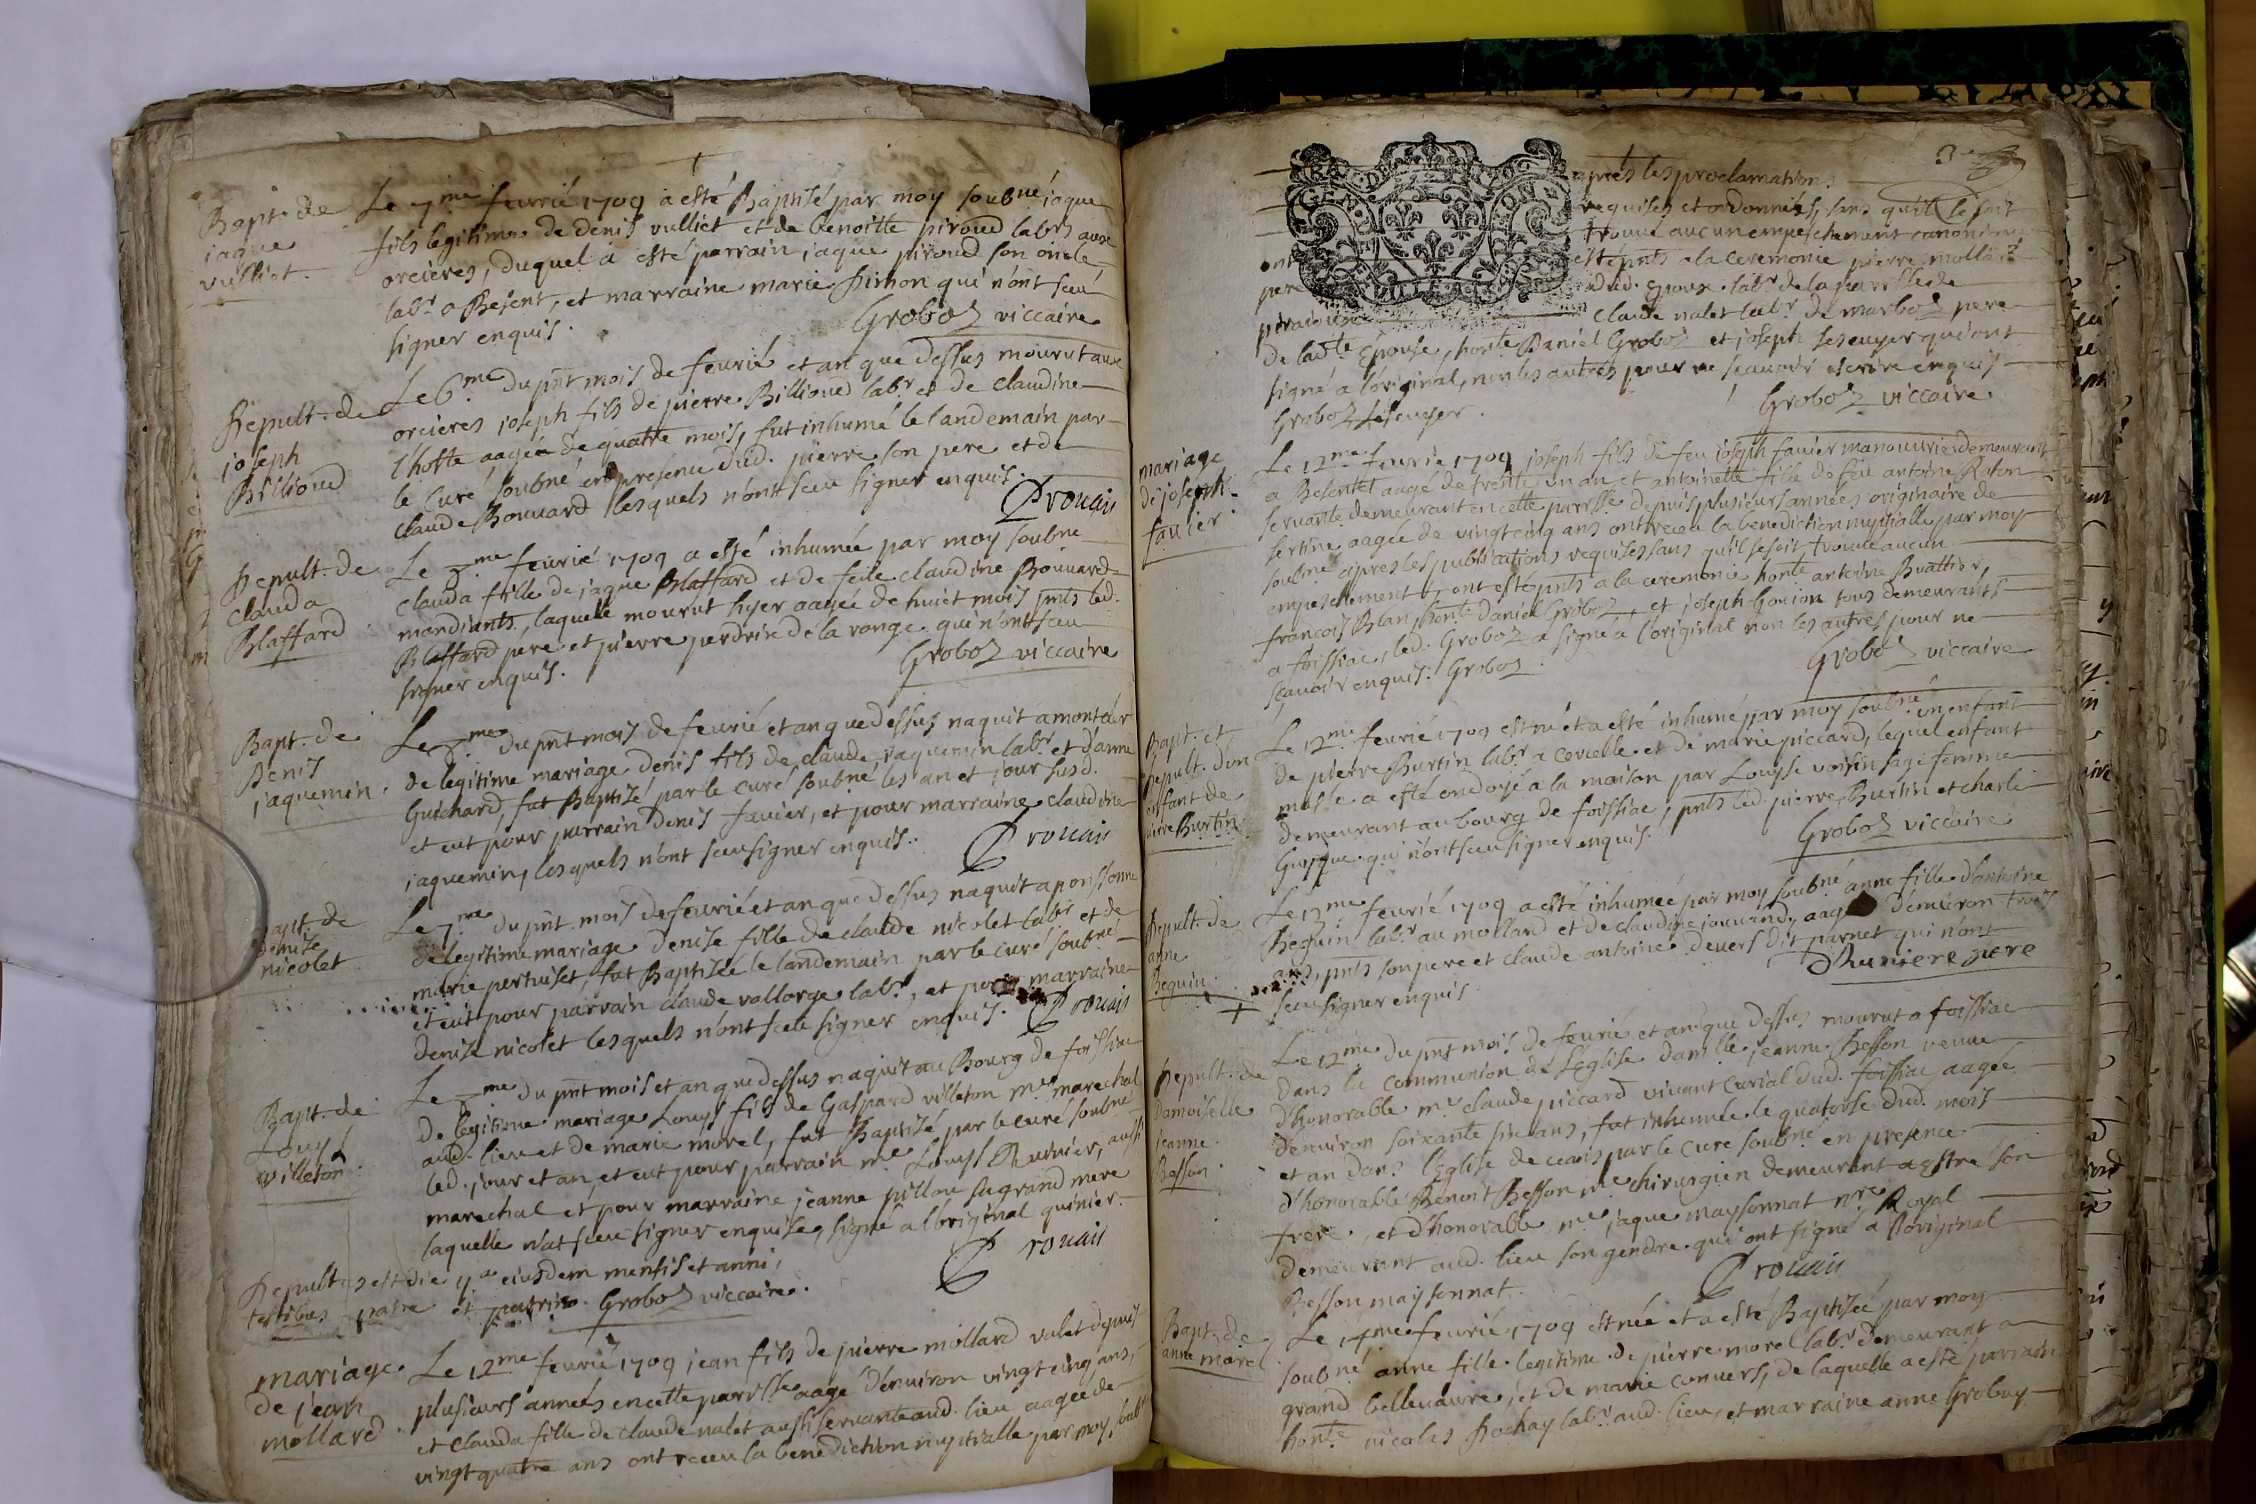 Bapt. de
jaque
vulliet.
Le 7me feurié 1709 a esté Baptisé par moy soubné jaque
fils legitime de denis vulliet et de benoitte piroud labrs aux
orcieres, duquel a esté parrain jaque piroud son oncle
labr a Besent, et marraine marie Pithon qui n'ont sceu
signer enquis.
Groboz viccaire
Sepult. de
joseph
Billioud
Le 6me du pnt mois de feurié et an que dessus mourut aux
orcieres joseph fils de pierre Billioud labr et de claudine
l'hoste aagée de quatre mois, fut inhumé le landemain par
le curé soubné en presence dud. pierre son pere et de
claude Bouuard lesquels n'ont sceu signer enquis.
Prouais
Sepult. de
clauda
Blaffard
Le 7me feurié 1709 a esté inhumée par moy soubné
clauda fille de jaque Blaffard et de feue claudine Bouuard
mandiants, laquelle mourut hyer aagée de huict mois pnts led.
Blaffard pere et pierre perdrix de la ronge qui n'ont sceu
signer enquis.
Groboz viccaire
Bapt. de
Denis
jaquemin.
Le 7me du pnt mois de feurié et an que dessus naquit a
de legitime mariage denis fils de claude jaquemin labr et d'anne
Guichard, fut Baptisé par le curé soubné les an et jour susd.
et eut pour parrain denis fauier, et pour marraine claudine
jaquemin, lesquels n'ont sceu signer enquis.
Prouais
Bapt. de
denise
nicolet
Le 7me du pnt mois de feurié et an que dessus naquit a ponssonne
de legitime mariage denise fille de claude nicolet labr et de
marie pertuiset, fut Baptisée le landemain par le curé soubné
et eut pour parrain claude vollorge labr, et pour marraine
denise nicolet lesquels n'ont sceu signer enquis. Prouais
Bapt. de
Louys
villeton
Le 7me du pnt mois et an que dessus naquit au Bourg de foissiac
de legitime mariage Louys fils de Gaspard villeton me marechal
aud. lieu et de marie morel, fut Baptisé par le curé soubné
led. jour et an, et eut pour parrain me Louys, aussi
marechal et pour marraine jeanne pillou sa grand mere
laquelle n'at sceu signer enquise, signé a l'original quinier.
Prouais
Sepultus est die 11a eiusdem mensis et anni,
testibus patre et patrino. Groboz viccaire.
mariage
de jean
mollard
Le 12me feurié 1709 jean fils de pierre mollard valet depuis
plusieurs années en cette parisse aagé d'enuiron vingt cinq ans,
et clauda fille de claude nalet aussi seruante aud. lieu aagée de
vingt quatre ans ont receu la benediction nuptialle par moy soubné
3e
apres les proclamations
requises et ordonnées, sans qu'il se soit
trouué aucun empeschement canonique
ont esté pnts a la ceremonie pierre mollard
pere dud. epoux labr de la parisse de
claude nalet labr de marboz pere
de ladte Epouse, honte Daniel Groboz et joseph lescuyer qui ont
signé a l'original, non les autres pour ne sçauoir escrire enquis
Groboz Lescuyer.
Groboz viccaire
mariage
de joseph
fauier.
Le 12me feurié 1709 joseph fils de feu joseph fauier manouurier demeurant
a Besentet aagé de trente un an et antoinette fille de feu antoine Raton
seruante demeurant en cette parisse depuis plusieurs années originaire de
sertine aagée de vingt cinq ans ont receu la benediction nuptialle par moy
soubné apres les publications requises sans qu'il se soit trouué aucun
empeschement, ont esté pnts a la ceremonie honte antoine Buattier,
francois Blan, honte daniel Groboz, et joseph Goujon tous demeurants
a foissiac, led. Groboz a signé a l'original non les autres pour ne
sçauoir enquis. Groboz.
Groboz viccaire
Bapt. et
sepult. d'un
enfant de
pierre Burtin
Le 12me feurié 1709 est né et a esté inhumé par moy soubné un enfant
de pierre Burtin labr a coruelle et de marie piccard, lequel enfant
masle a esté ondoyé a la maison par Louyse voisin sage femme
demeurant au bourg de foissiac, pnts led. pierre Burtin et charle
qui n'ont sceu signer enquis.
Groboz viccaire
Sepult. de
anne
Beguin.
Le 13me feurié 1709 a esté inhumée par moy soubné anne fille d'antoine
Beguin labr au mollard et de claudine jouuend, aagée d'enuiron trois
ans, pnts son pere et claude antoine deuers dit parnet qui n'ont
sceu signer enquis.
Sepult. de
Damoiselle
jeanne
Besson.
Le 12me du pnt mois de feurié et an que dessus mourut a foissiac
dans la communion de l'Eglise damlle jeanne Besson veuue
d'honorable me claude piccard viuant curial dud. foissiac aagée
d'enuiron soixante six ans, fut inhumée le quatorse dud. mois
et an dans l'Eglise de ceans par le curé soubné en presence
d'honorable Benoit Besson me chirurgien demeurant a Estre son
frere, et d'honorable me jaque maysonnat nre Royal
demeurant aud. lieu son gendre qui ont signé a l'original
Besson maysonnat.
Prouais
Bapt. de
anne morel
Le 14me feurié 1709 est née et a esté Baptisée par moy
soubné anne fille legitime de pierre morel labr demeurant a
grand belleuaure, et de marie conuers, de laquelle a esté parrain
honte nicolas Rochay labr aud. lieu, et marraine anne Grobuy